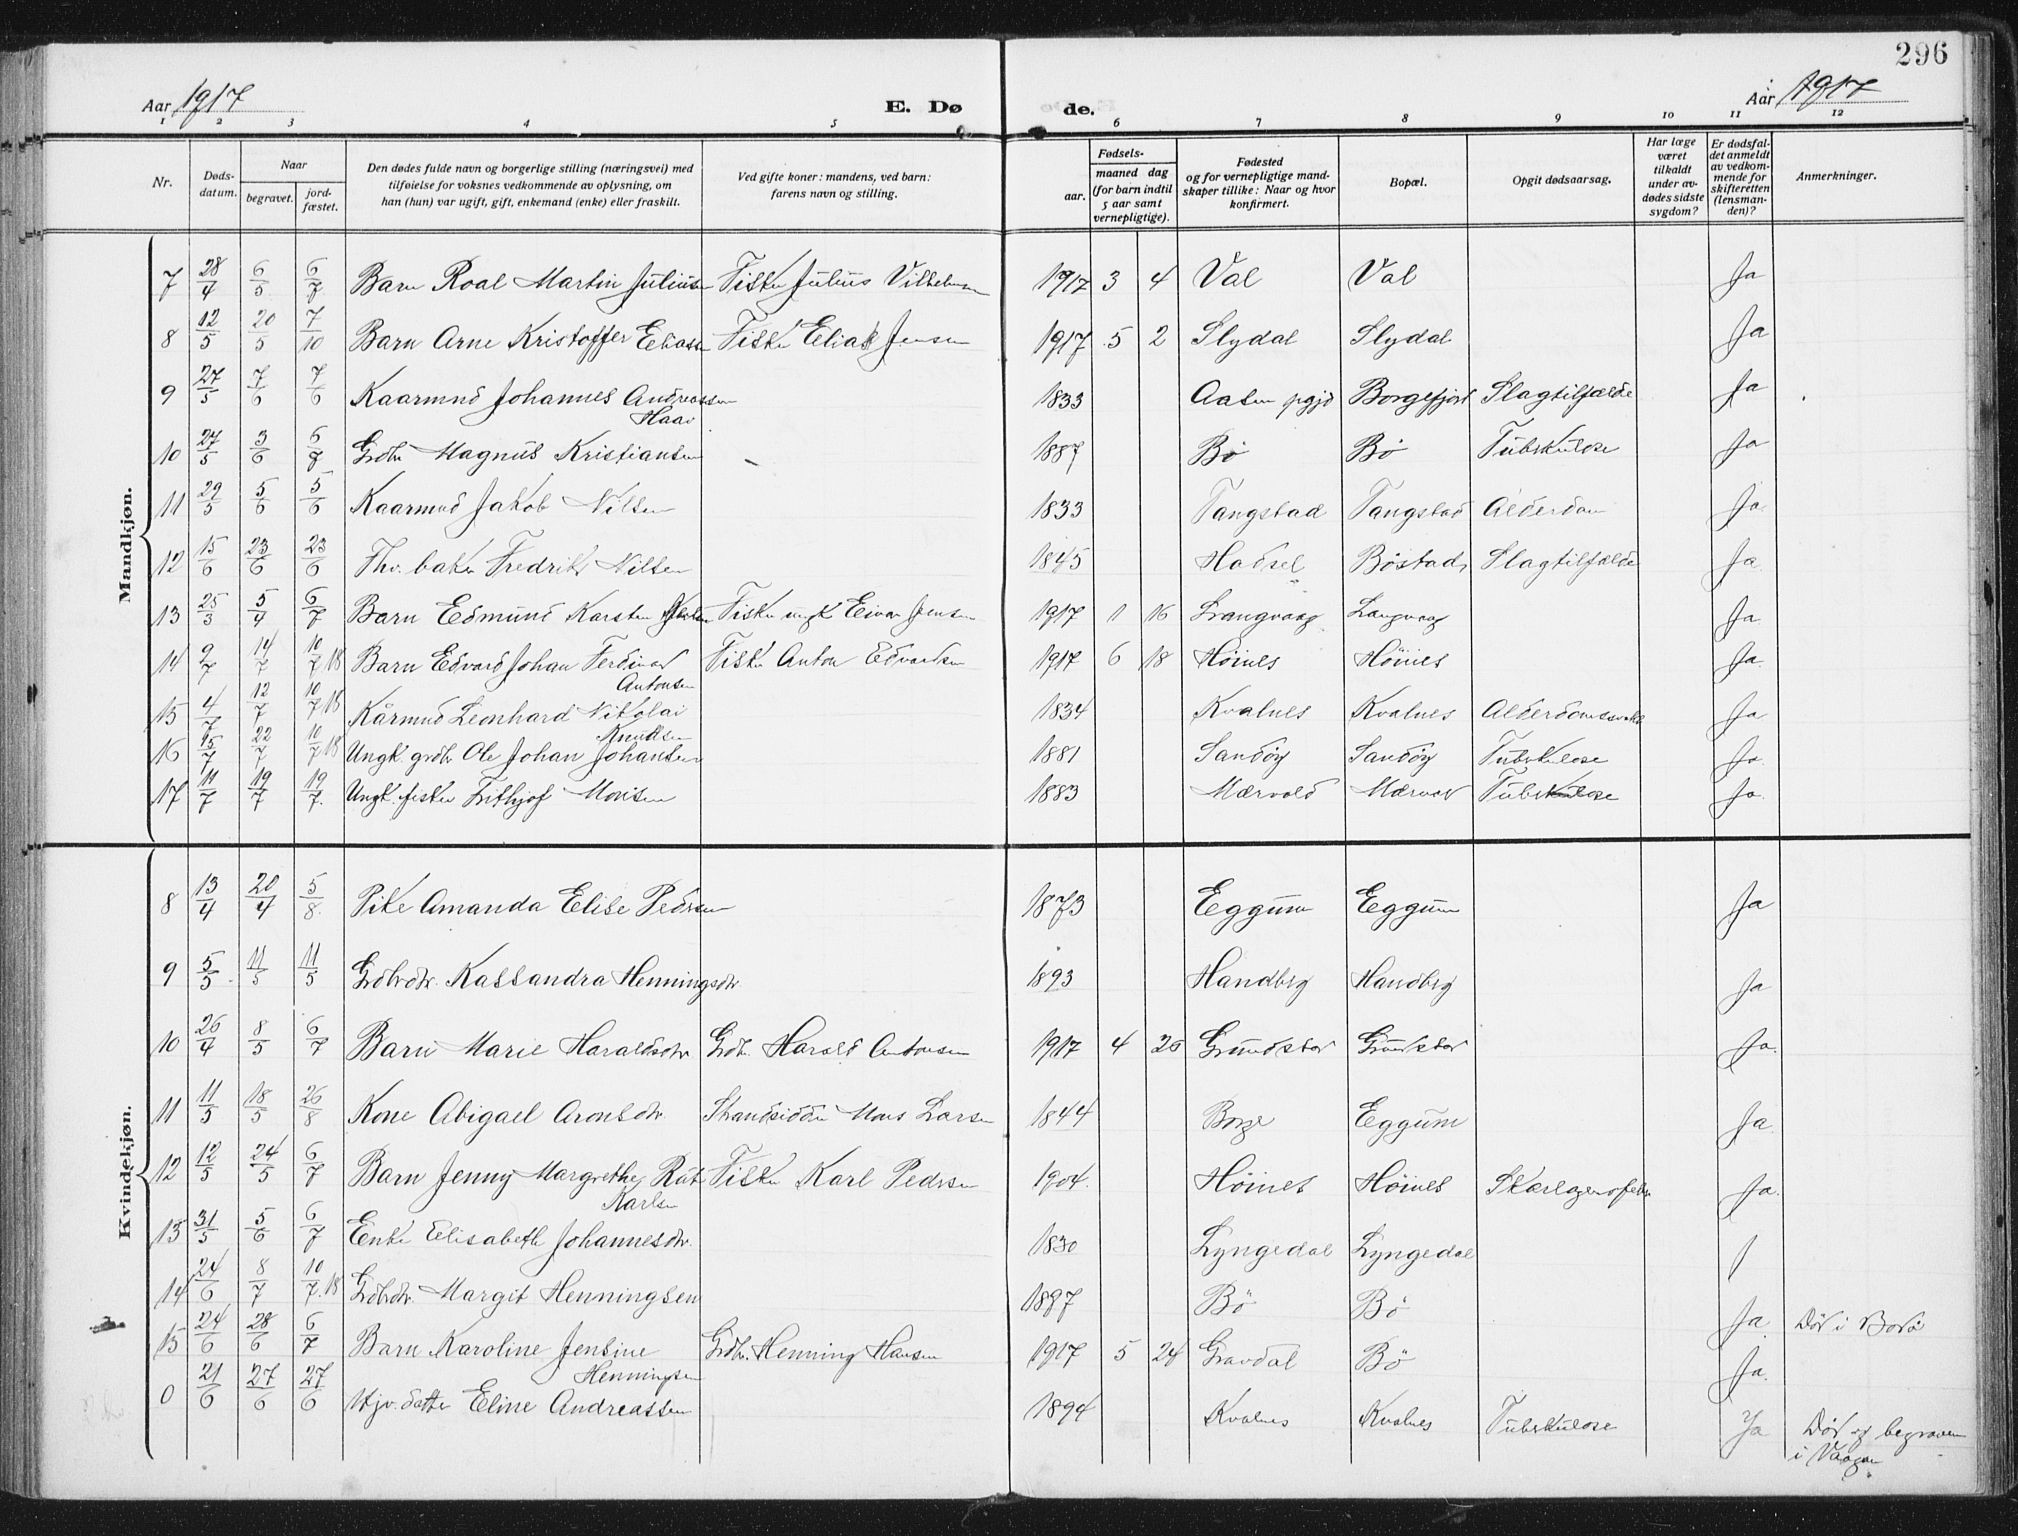 296
Aar 1917 E. Dø de. Aar 1917
1 2 3 4 5 6 7 8 9 10 11 12
Nr. Døds-datum. Naar begravet. jord-fæstet. Den dødes fulde navn og borgerlige stilling (næringsvei) med tilføielse for voksnes vedkommende av oplysning, om han (hun) var ugift, gift, enkemand (enke) eller fraskilt. Ved gifte koner: mandens, ved barn: farens navn og stilling. Fødsels- aar. maaned dag (for barn indtil 5 aar samt vernepligtige). Fødested og for vernepligtige mandskaper tillike: Naar og hvor konfirmert. Bopæl. Opgit dødsaarsag. Har læge været tilkaldt under avdødes sidste sygdom? Er dødsfaldet anmeldt av vedkommende for skifteretten (lensmanden)? Anmerkninger.
Mandkjøn.
7 28/4 6/5 6/7 Barn Roal Martin Juliussen Fisker Julius Vilhelmsen 1917 3 4 Val Val Ja
8 12/5 20/5 7/10 Barn Arne Kristoffer Eliassen Fisker Elias Jensen 1917 5 2 Slydal Slydal Ja
9 27/5 7/6 7/6 Kaarmnd Johannes Andreassen 1833 Aasen pgjd Borgefjord Slagtilfælde Ja
Haav
10 27/5 3/6 6/7 Grdbr Magnus Kristiansen 1887 Bø Bø Tuberkulose Ja
11 29/5 5/6 5/6 Kaarmnd Jakob Nilsen 1833 Tangstad Tangstad Alderdom Ja
12 15/6 23/6 23/6 Fhv. baker Fredrik Nilsen 1845 Hadsel Bøstad Slagtilfælde Ja
13 25/3 5/4 6/7 Barn Edmund Karsten Fisker ungk Eivar Jensen 1917 11 16 Langvaag Langvaag Ja
14 9/7 14/7 10/7 18 Barn Edvard Johan Ferdinad Fisker Anton Edvardsen 1917 6 18 Høines Høines Ja.
Antonsen
15 4/7 12/7 10/7 18 Kårmnd Leonhard Nikolai 1834 Kvalnes Kvalnes Alderdomssvakh Ja
Knudsen
16 15/7 22/7 10/7 18 Ungk. grdbr Ole Johan Johansen 1881 Sandøy Sandøy Tuberkulose Ja.
17 11/7 19/7 19/7. Ungk. fisker Frithjof Monsen 1883 Mærvold Mærvold Tuberkulose Ja.
Kvindekjøn.
8 13/4 20/4 5/8. Pike Amanda Elise Pedersen 1873 Eggum Eggum Ja
9 5/5 11/5 11/5 Grdbrdtr. Kassandra Henningsdtr 1893 Handberg Handberg Ja
10 26/4 8/5 6/7 Barn Marie Haraldsdtr Grdbr. Harald Antonsen 1917 4 26 Grundstad Grundstad Ja.
11 11/5 18/5 26/8 Kone Abigael Aronsdtr Strandsidder Mons Larsen 1844 Borge Eggum Ja.
12 12/5 24/5 6/7 Barn Jenny Margrethe Rut Fisker Karl Pedersen 1904. Høines Høines Skarlagensfeber Ja.
Karlsen
13 31/5 5/6 6/7 Enke Elisabeth Johannesdtr. 1830 Lyngedal Lyngedal
14 24/6 8/7 10/7.18 Grdbrdtr. Margit Henningsen 1897 Bø Bø Ja Død i Bodø
15 24/6 28/6 6/7 Barn Karoline Jensine Grdbr. Henning Hansen 1917 5 24 Gravdal Bø Ja.
Henningsen
0 21/6 27/6 27/6 Hjv. datter Eline Andreassen 1894 Kvalnes Kvalnes Tuberkulose Ja Død og begraven
i Vaagan